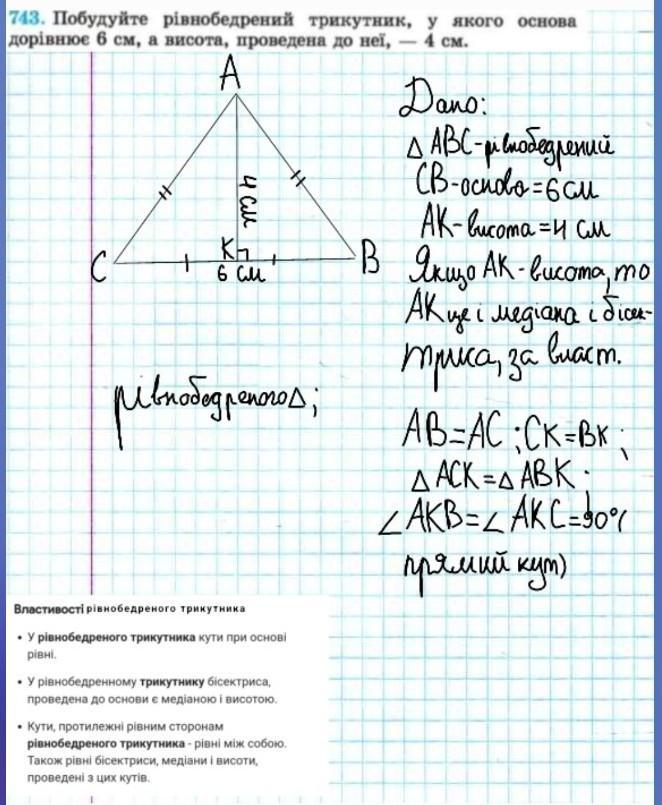 743. Побудуйте рівнобедрений трикутник, у якого основа
дорівнює 6 см, а висота, проведена до неї, — 4 см.
A
4 см
K
C
6 см
B
Дано:
△ ABC-рівнобедрений
CB-основа=6см
AK-висота=4 см
Якщо AK-висота, то
AK це і медіана і бісек-
трика, за власт.
рівнобедреного△;
AB=AC ; CK=BK ;
△ ACK=△ ABK ;
∠ AKB=∠ AKC=90°(
прямий кут)
Властивості рівнобедреного трикутника
• У рівнобедреного трикутника кути при основі
рівні.
• У рівнобедренному трикутнику бісектриса,
проведена до основи є медіаною і висотою.
• Кути, протилежні рівним сторонам
рівнобедреного трикутника - рівні між собою.
Також рівні бісектриси, медіани і висоти,
проведені з цих кутів.